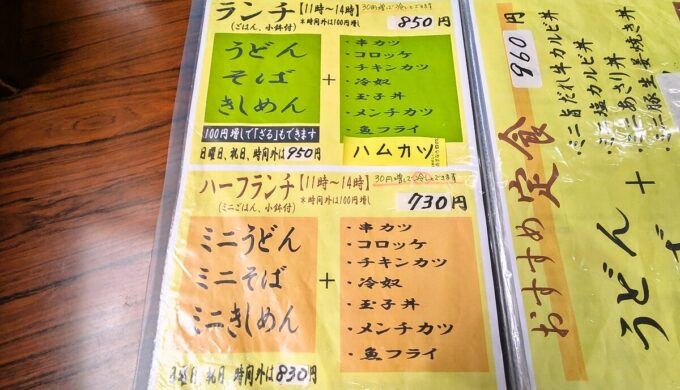 ランチ【11時〜14時】
30円増しで冷しもできます
(ごはん、小鉢付)
＊時間外は100円増し
850円
うどん
そば
きしめん
+
・串カツ
・コロッケ
・チキンカツ
・冷奴
・玉子丼
・メンチカツ
・魚フライ
ハムカツ
100円増しで「ざる」もできます
日曜日、祝日、時間外は950円
ハーフランチ【11時〜14時】
30円増しで冷しもできます
(ミニごはん、小鉢付)
＊時間外は100円増し
730円
ミニうどん
ミニそば
ミニきしめん
+
・串カツ
・コロッケ
・チキンカツ
・冷奴
・玉子丼
・メンチカツ
・魚フライ
日曜日、祝日、時間外は830円
おすすめ定食
960円
・ミニ旨だれ牛カルビ丼
・ミニ塩カルビ丼
・ミニあさり丼
・ミニ豚生姜焼き丼
+
うどん